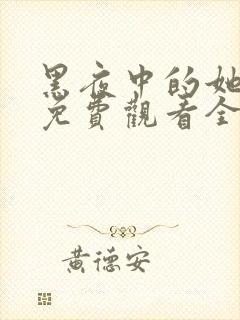 黑夜中的她
免費觀看全
黃德安